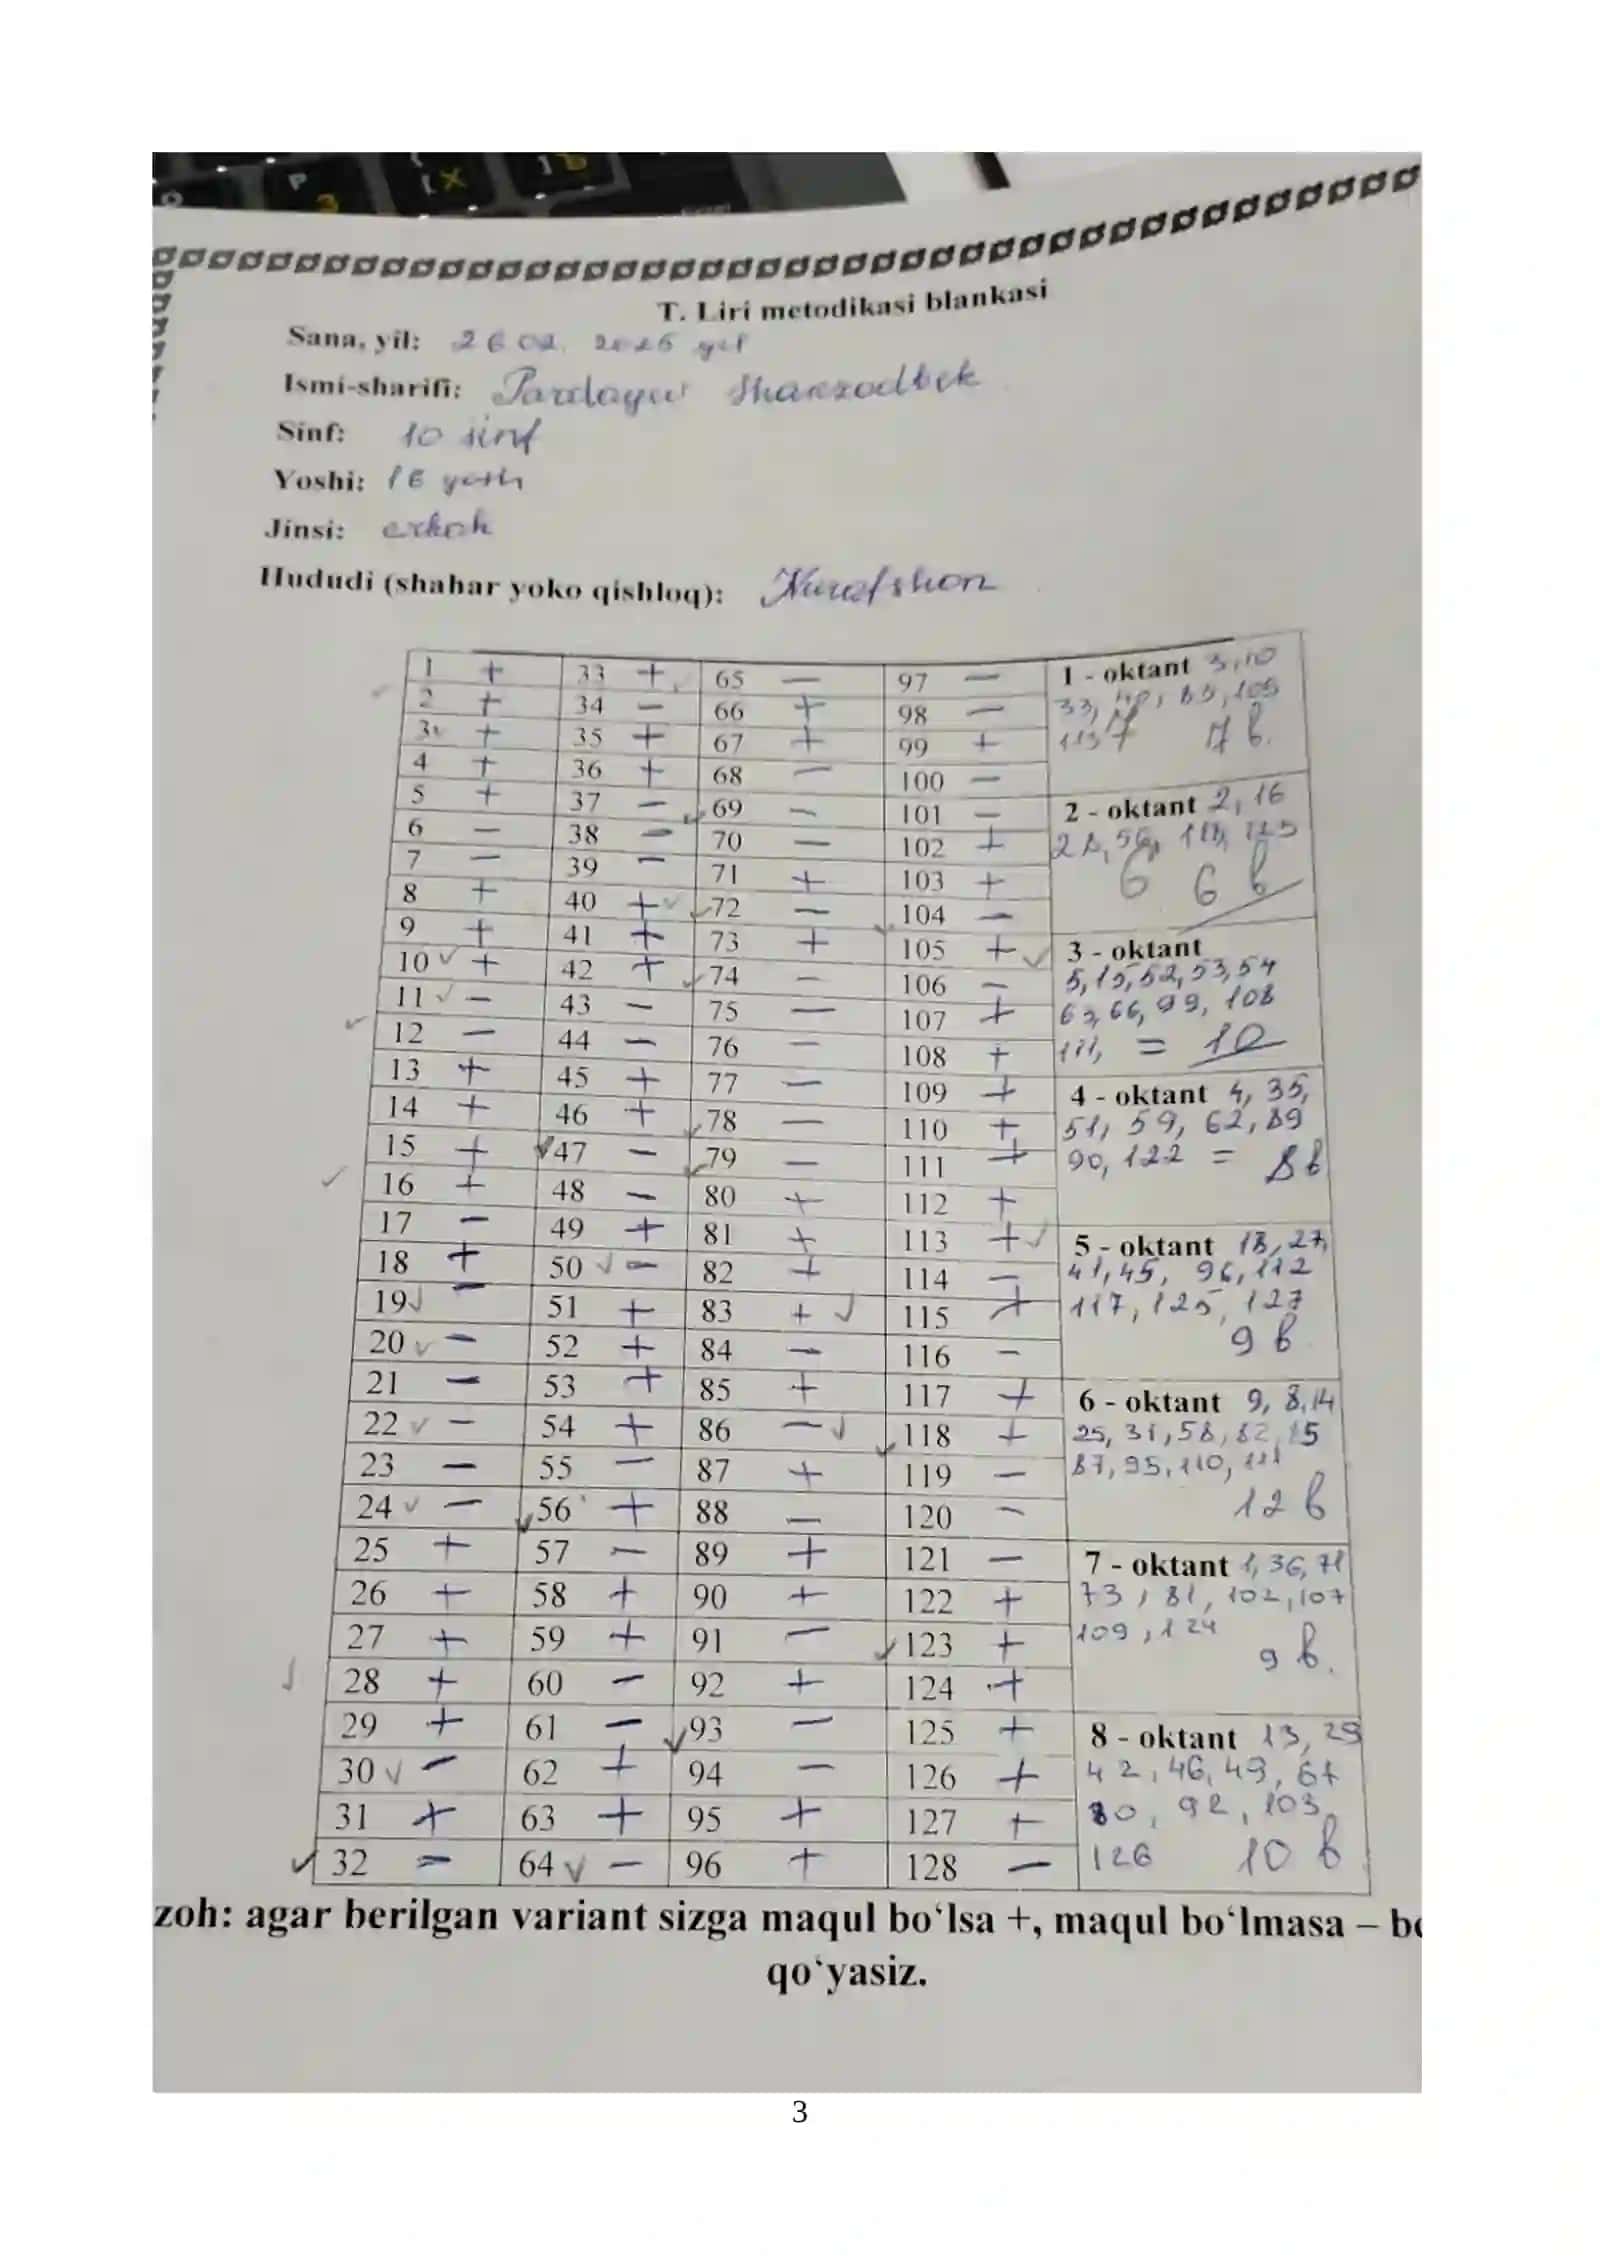 T. Liri metodikasi blankasi
Sana, yil: 26.02. 2025 yil
Ismi-sharifi: Pardayev Shaxzodbek
Sinf: 10 sinf
Yoshi: 16 yosh
Jinsi: erkak
Hududi (shahar yoko qishloq): Nurafshon
1 + 33 + 65 — 97 — 1 - oktant 3,10
2 + 34 — 66 + 98 — 33, 40, 83, 105
3 + 35 + 67 + 99 + 113 7 7 b.
4 + 36 + 68 — 100 —
5 + 37 — 69 — 101 — 2 - oktant 2, 16
6 — 38 — 70 — 102 + 28, 56, 118, 123
7 — 39 — 71 + 103 + 6 6 b
8 + 40 + 72 — 104 —
9 + 41 + 73 + 105 + 3 - oktant
10 + 42 + 74 — 106 — 5, 15, 52, 53, 54
11 — 43 — 75 — 107 + 63, 66, 99, 108
12 — 44 — 76 — 108 + 111, = 10
13 + 45 + 77 — 109 + 4 - oktant 4, 35,
14 + 46 + 78 — 110 + 51, 59, 62, 89
15 + 47 — 79 — 111 + 90, 122 = 8 b
16 + 48 — 80 + 112 +
17 — 49 + 81 + 113 + 5 - oktant 18, 27,
18 + 50 — 82 + 114 — 41, 45, 96, 112
19 — 51 + 83 + 115 + 117, 125, 127
20 — 52 + 84 — 116 — 9 b
21 — 53 + 85 + 117 + 6 - oktant 9, 8, 14
22 — 54 + 86 — 118 + 25, 31, 58, 82, 85
23 — 55 — 87 + 119 — 87, 95, 110,
24 — 56 + 88 — 120 — 12 b
25 + 57 — 89 + 121 — 7 - oktant 1, 36, 71
26 + 58 + 90 + 122 + 73, 81, 102, 107
27 + 59 + 91 — 123 + 109, 124
28 + 60 — 92 + 124 + 9 b.
29 + 61 — 93 — 125 + 8 - oktant 13, 29
30 — 62 + 94 — 126 + 42, 46, 49, 67
31 + 63 + 95 + 127 + 80, 92, 103,
32 — 64 — 96 + 128 — 126 10 b
zoh: agar berilgan variant sizga maqul bo‘lsa +, maqul bo‘lmasa – be
qo‘yasiz.
3